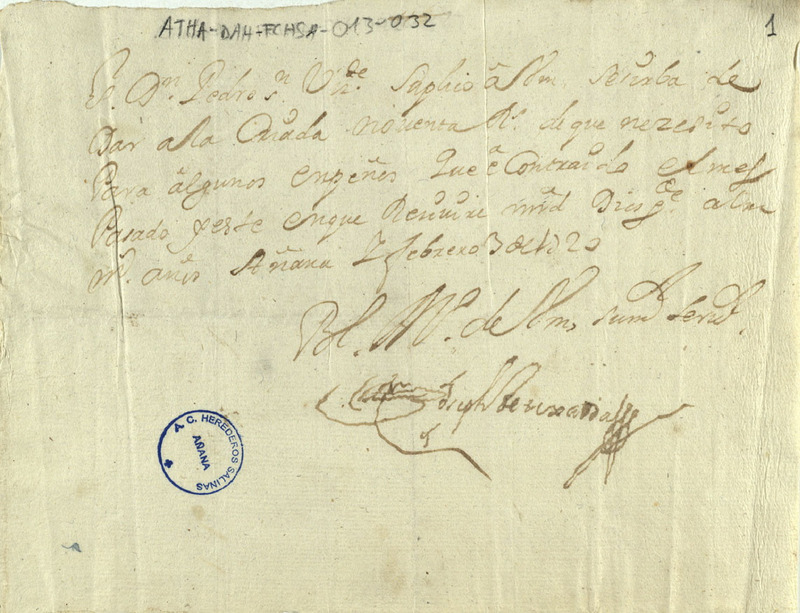 ATHA-DAH-FCHSA-013-032
1
S. Dn. Pedro Sn. Viz.te Suplico a Vm. se sirba de
Dar a la Criada noventa Rs. de que nezesito
Para algunos enpeños que e Contraido el mes
Pasado y este en que Reziuire mrd Dios ge. a Vm
ms. años Añana y febrero 3 de 1720
Bl. Ms. de Vm, su mr. serr.
A. C. HEREDEROS SALINAS
AÑANA